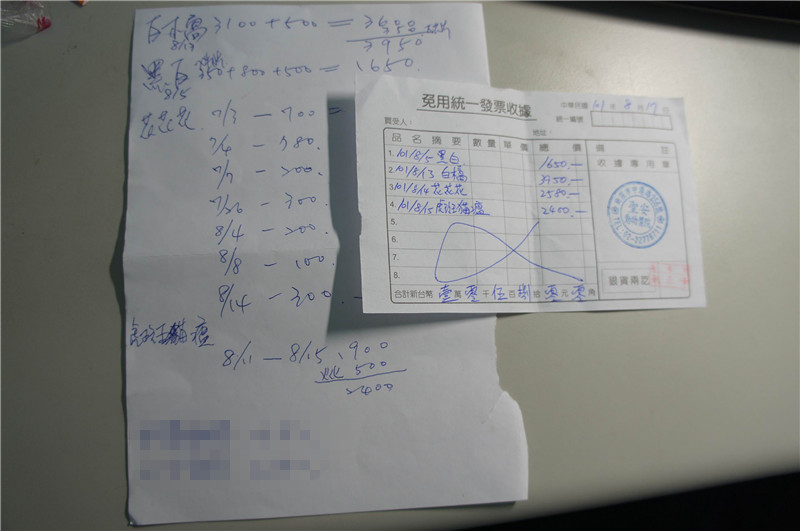 白橘 3100+500 = 3600
8/13 350
3950
黑白 350+800+500 = 1650
8/5
花花花 7/3 — 700
7/4 — 780
7/7 — 200
7/26 — 300
8/4 — 200
8/8 — 100
8/14 — 300
虎斑貓瘟
8/11 — 8/15 1900
500
2400
免用統一發票收據
中華民國 101 年 8 月 17 日
統一編號
買受人：
地址：
品名摘要 數量 單價 總價 備註
1. 101/8/5 黑白 1650.— 收據專用章
2. 101/8/13 白橘 3950.—
3. 101/8/14 花花花 2580.—
4. 101/8/15 虎斑貓瘟 2400.—
5.
6.
7.
8.
銀貨兩訖
合計新台幣 壹 萬 零 千 伍 百 捌 拾 零 元 零 角